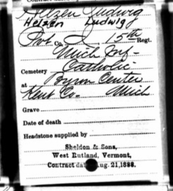 Helzen Ludwig
Helzen Ludwig
Pvt. Co. I 15th Regt.
Mich Inf.
Cemetery Catholic
at Byron Center
Kent Co. Mich
Grave
Date of death
Headstone supplied by
Sheldon & Sons,
West Rutland, Vermont,
Contract dated Aug. 21, 1888.